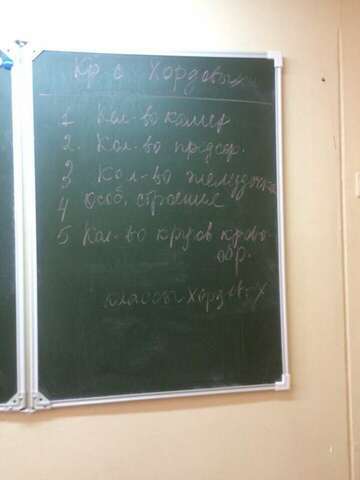 Кр с Хордовых
1 Кол-во камер
2. Кол-во предсер.
3 Кол-во желудочков
4 Особ. строение
5 Кол-во кругов крово-
обр.
классы Хордовых